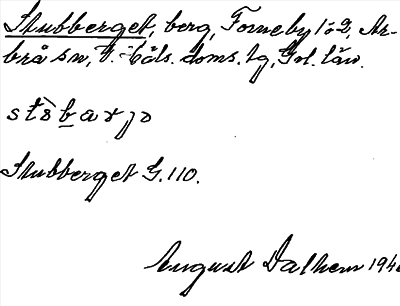 Stubberget, berg, Forneby 1 o 2, Ar-
brå sn, V. Häls. doms. tg, Gvl. län.
Stubberget G. 110.
August Dalhem 194